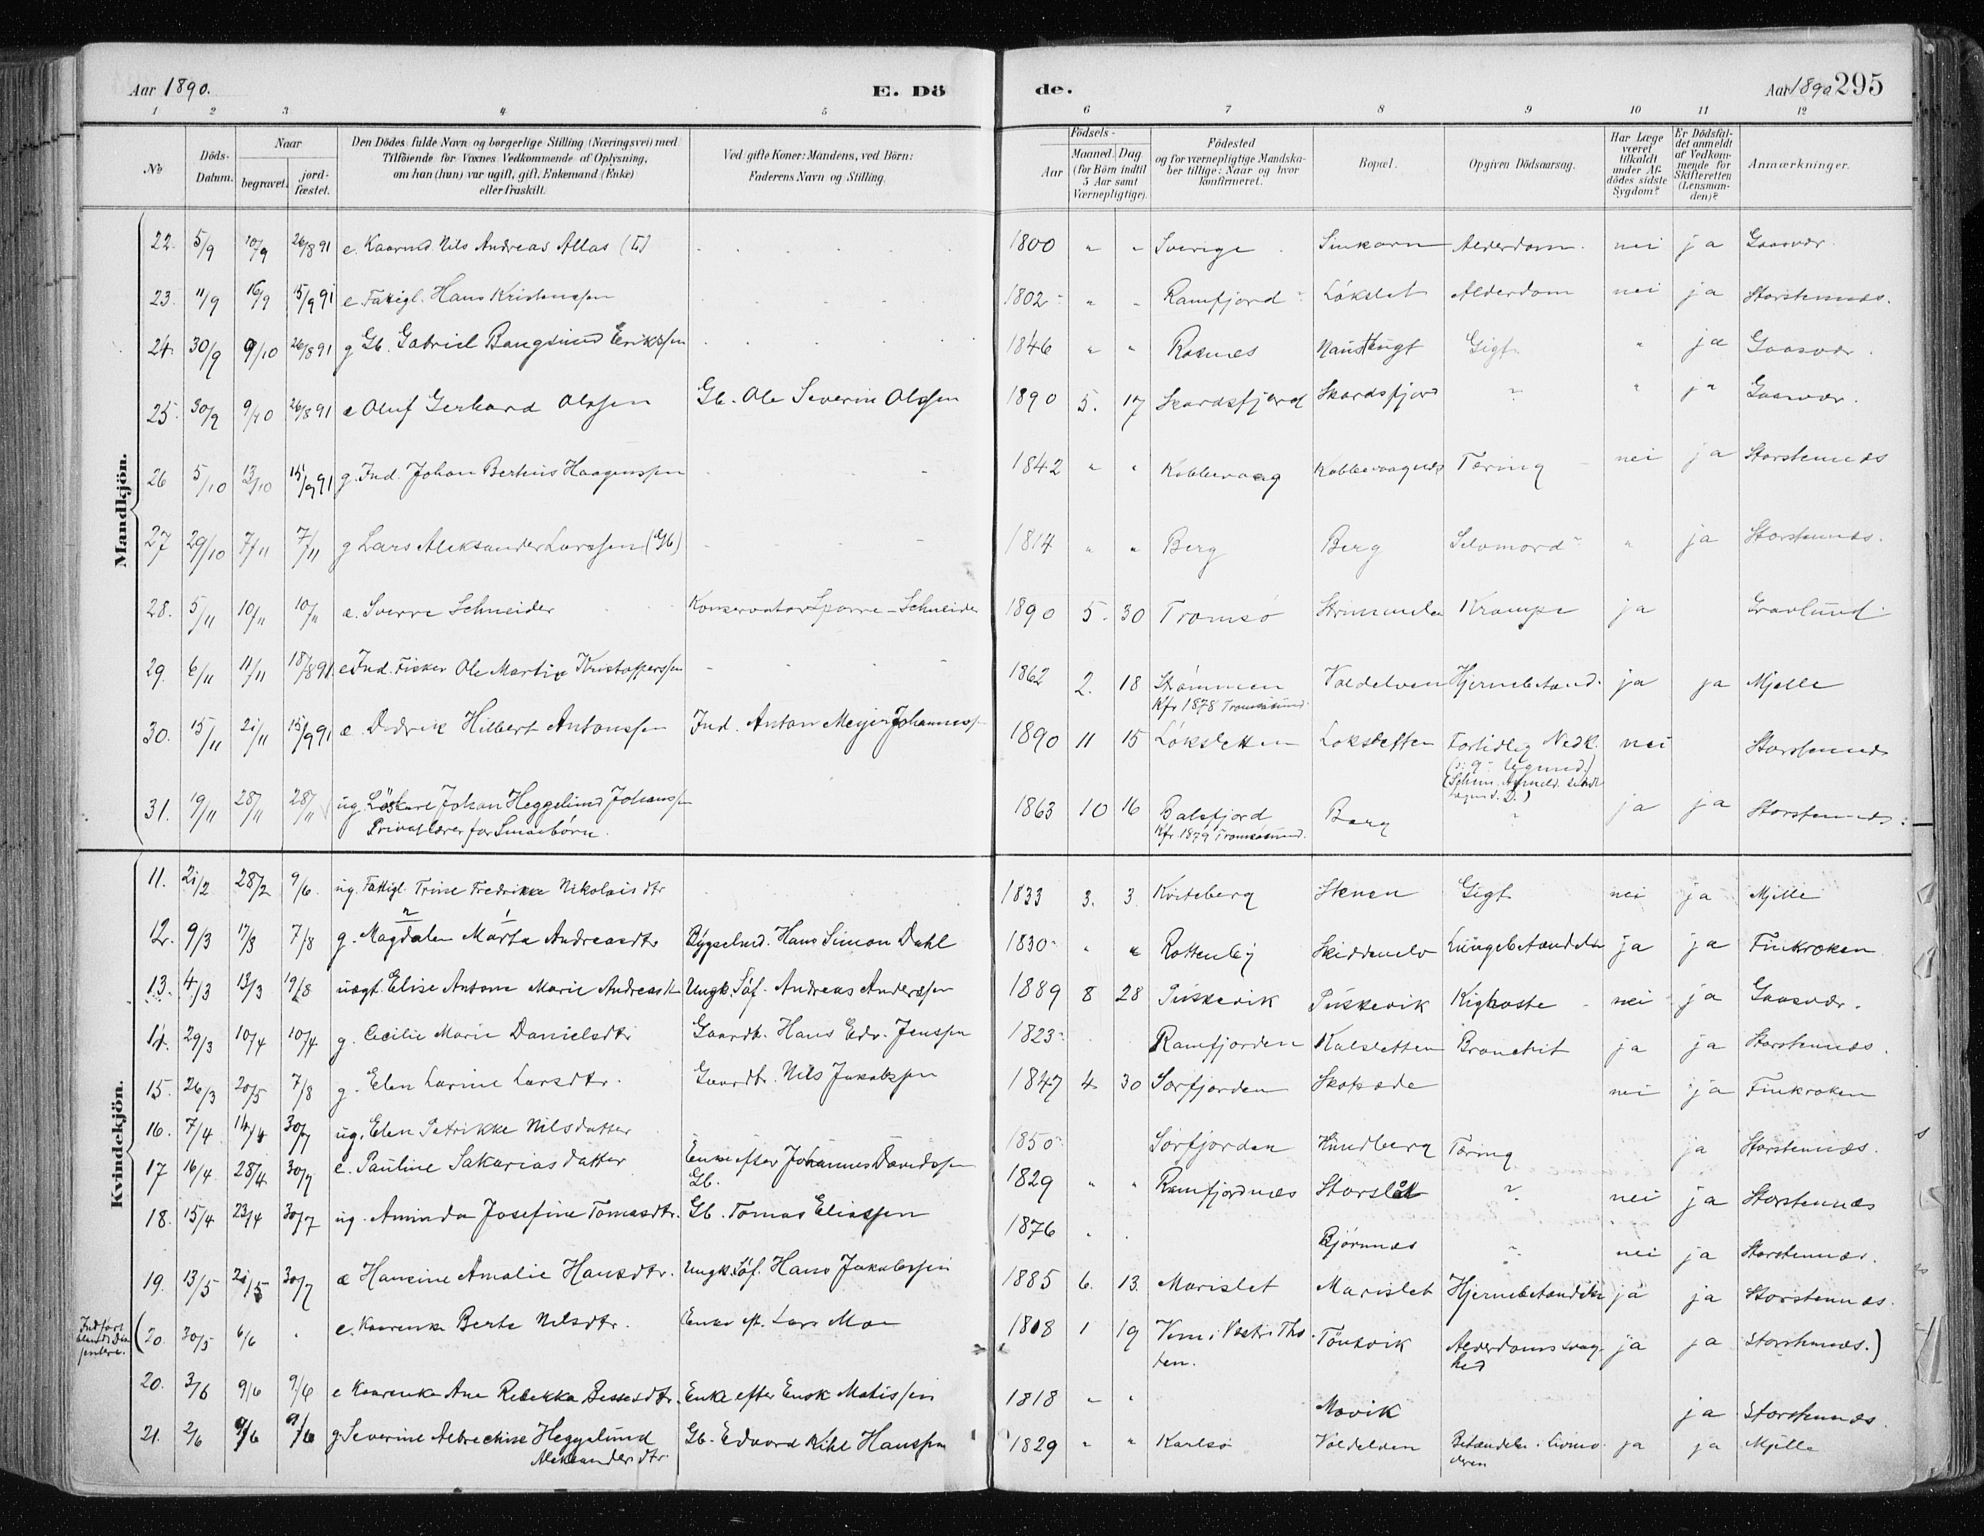 Aar 1890. E. Dö
de. Aar 1890 295
1 2 3 4 5
6 7 8 9 10 11 12
No Döds-Datum. Naar begravet. jord-fæstet.
Den Dödes fulde Navn og borgerlige Stilling (Næringsvei) med
Tilföiende for Voxnes Vedkommende af Oplysning,
om han (hun) var ugift, gift, Enkemand (Enke)
eller fraskilt.
Ved gifte Koner: Mandens, ved Börn:
Faderens Navn og Stilling.
Födsels-
Aar Maaned. Dag
(for Börn indtil
5 Aar samt
Værnepligtige).
Födested
og for værnepligtige Mandska-
ber tillige: Naar og hvor
konfirmeret.
Bopæl.
Opgiven Dödsaarsag.
Har Læge
været
tilkaldt
under Af-
dödes sidste
Sygdom?
Er Dödsfal-
det anmeldt
af Vedkom-
mende for
Skifteretten
(Lensman-
den)?
Anmærkninger.
Mandkjön.
22. 5/9 10/9 26/8 91 e Kaarmd. Nils Andreas Allas (L) 1800 " " Sverige Alderdom nei ja Gaasvær.
23. 11/9 16/9 15/9 91 e Fattigl. Hans Kristenssen 1802 " " Ramfjord Løkslet Alderdom nei ja Storstennæs.
24. 30/9 9/10 26/8 91 g Gb. Gabriel Bangsund Erikssen 1846 " " Roxnes Naustbugt Gigt " ja Gaasvær.
25. 30/9 9/10 26/8 91 e Oluf Gerhard Olssen Gb. Ole Severin Olssen 1890 5. 17 Skardsfjord Skardsfjord ? " ja Gaasvær.
26 5/10 13/10 15/9 91 g. Ind. Johan Berthus Haagenssen 1842 " " Kobbevaag Kobbevaagnæs Tæring nei ja Storstennæs
27 29/10 7/11 7/11 g Lars Aleksander Larssen (Gb) 1814 " " Berg Berg Selvmord " ja Storstennæs.
28. 5/11 10/11 10/11 e. Sverre Schneider Konservator Sparre-Schneider 1890 5. 30 Tromsø Krampe ja Gravlund.
29. 6/11 11/11 18/8 91 e Ind. Fisker Ole Martin Kristofferssen 1862 2. 18 Strømmen Valdelven Hjernebetænd. ja ja Mjelle
Kfr 1878 Tromsøsund.
30. 15/11 21/11 15/9 91 e. Didrik Hilbert Antonssen Ind. Anton Meyer Johannessen 1890 11 15 Løksletten Løksletten Fortidlig Nedk. nei Storstennæs
31. 19/11 28/11 28/11 ug. Løskare Johan Heggelund Johanssen 1863 10 16 Balsfjord Berg ? ja ja Storstennæs.
Privatlærer for Smaabørn. Kfr. 1879 Tromsøsund.
Kvindekjön.
11. 21/2 28/2 9/6. ug. Fattigl. Trine Fredrikke Nikolaisdtr 1833 3. 3. Kviteberg Stenen Gigt nei ja Mjelle
12. 9/3 17/3 7/8 g. Magdalen Marta Andreasdtr Bygselmd. Hans Simon Dahl 1830 " " Rottenby Skiddenelv Lungebetændelse ja ja Finkroken
13. 4/3 13/3 19/8 uægt. Elise Antone Marie Andreasdtr Ungk. Søf. Andreas Anderssen 1889 8 28 Kighoste nei ja Gaasvær.
14. 29/3 10/4 10/4 g. Cecilie Marie Danielsdtr Gaardb. Hans Edv. Jenssen 1823 Ramfjorden Kalsletten Bronchit ja ja Storstennæs.
15. 26/3 20/5 7/8 g. Elen Larine Larsdtr. Gaardb. Nils Jakobssen 1847 4. 30 Sørfjorden nei ja Finkroken
16. 7/4 14/4 30/7 ug. Elen Petrikke Nilsdatter 1850 Sørfjorden Hundberg Tæring ja Storstennæs.
17 16/4 28/4 30/7 e. Pauline Sakariasdatter Enke efter Johannes Davidssen 1829 " " Ramfjordnæs Storslet ? nei ja Storstennæs
Gb.
18. 15/4 23/4 30/7 ug. Aminda Josefine Tomasdtr. Gb. Tomas Eliassen 1876 Bjørnnæs " nei ja Storstennæs.
19. 13/5 21/5 30/7 e Hansine Amalie Hansdtr. Ungk. Søf. Hans Jakobssen 1885 6. 13. Marislet Marislet Hjernebetændelse ja ja Storstennæs.
Indført
(20. 30/5 6/6 e. Kaarenke Berte Nilsdtr. Enke eft. Lars Moe 1818 1 19 Alderdomssvag- ja ja Storstennæs.)
hed
20. 3/6 9/6 9/6 e Kaarenke Ane Rebekka Enke efter Matissen 1818 " " Movik ja Storstennæs.
21. 2/6 9/6 9/6 g Severine Albrectine Heggelund Gb. Edvard Kihl Hanssen 1829 " " Karlsø Valdelven ja ja Mjelle
Aleksandersdtr